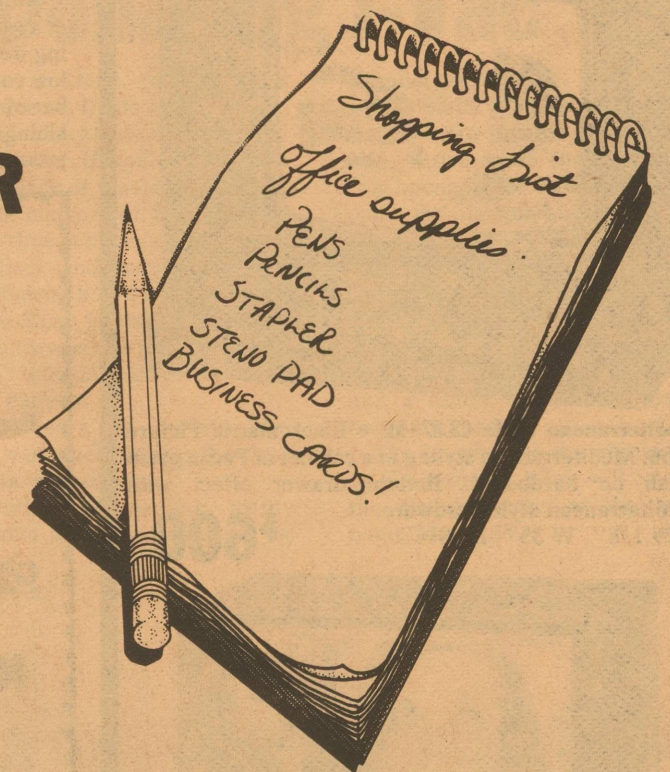 R
Shopping List
Office supplies.
PENS
PENCILS
STAPLER
STENO PAD
BUSINESS CARDS!